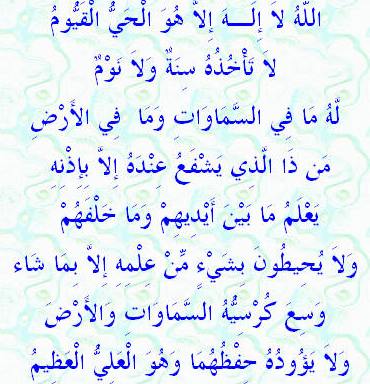 اللّهُ لاَ إِلَـــهَ إِلاَّ هُوَ الْحَيُّ الْقَيُّومُ
لاَ تَأْخُذُهُ سِنَةٌ وَلاَ نَوْمٌ
لَّهُ مَا فِي السَّمَاوَاتِ وَمَا فِي الأَرْضِ
مَن ذَا الَّذي يَشْفَعُ عِنْدَهُ إِلاَّ بِإِذْنِهِ
يَعْلَمُ مَا بَيْنَ أَيْدِيهِمْ وَمَا خَلْفَهُمْ
وَلاَ يُحِيطُونَ بِشَيْءٍ مِّنْ عِلْمِهِ إِلاَّ بِمَا شَاء
وَسِعَ كُرْسِيُّهُ السَّمَاوَاتِ وَالأَرْضَ
وَلاَ يَؤُودُهُ حِفْظُهُمَا وَهُوَ الْعَلِيُّ الْعَظِيمُ